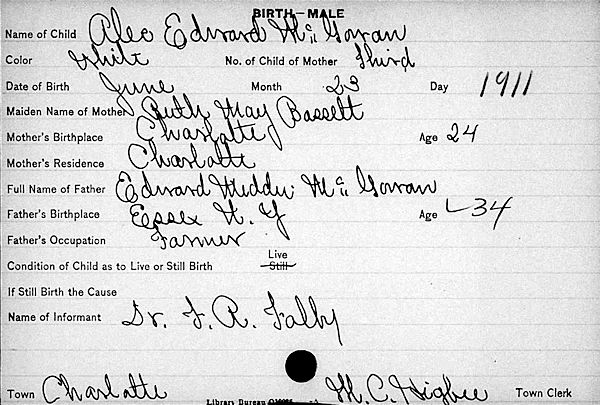 BIRTH—MALE
Name of Child Alec Edward McGowan
Color White No. of Child of Mother Third
Date of Birth June Month 23 Day 1911
Maiden Name of Mother Ruth May Bassett
Mother's Birthplace Charlotte Age 24
Mother's Residence Charlotte
Full Name of Father Edward McGowan
Father's Birthplace Essex N.Y Age 34
Father's Occupation Farmer
Live
Condition of Child as to Live or Still Birth Still
If Still Birth the Cause
Name of Informant Dr. F. R. Falby
Town Charlotte M. C. Higbee Town Clerk
Library Bureau